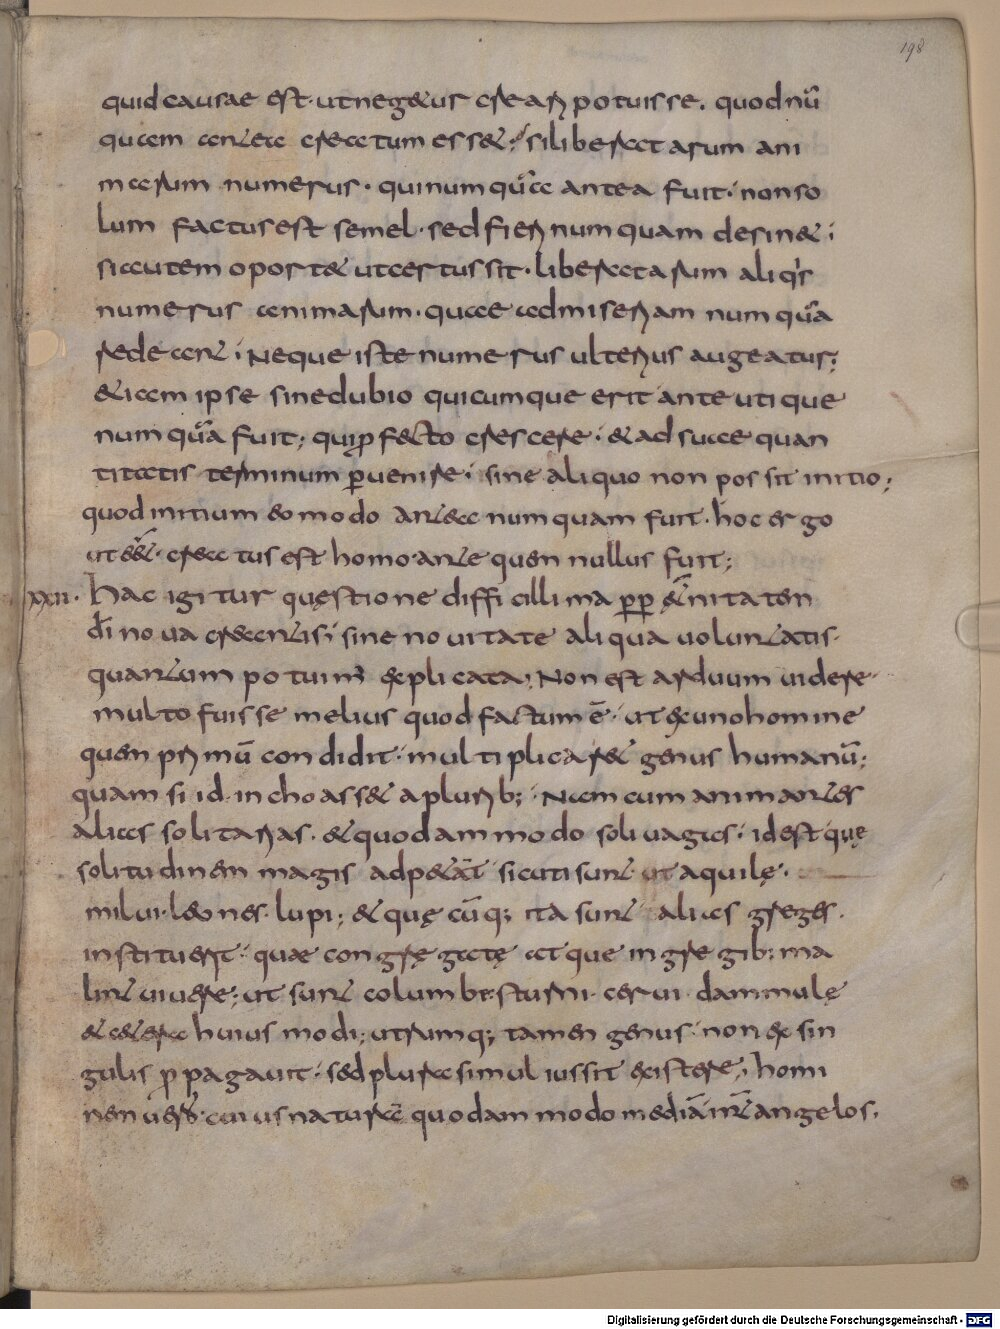 198
quid causae est· ut negetur creari potuisse. quod nū
quam antea creatum esset; si liberatarum ani
marum numerus· qui numquā antea fuit· non so
lum factus est semel· sed fieri numquam desinet;
si autem oportet ut certus sit· liberatarum aliqis
numerus animarum· quae ad miseriam numquā
redeant; Neque iste numerus ulterius augeatur;
etiam ipse sine dubio quicumque erit ante utique
numquā fuit; qui pfecto crescere· et ad suae quan
titatis terminum puenire· sine aliquo non possit initio;
quod initium eo modo antea numquam fuit· hoc ergo
ut eēt· creatus est homo· ante quem nullus fuit;
XXII· Hac igitur quęstione difficillima pp ęt̄nitatem
dī nova creantis; sine novitate aliqua voluntatis·
quantum potuim' explicata; Non est arduum videre·
multo fuisse melius quod factum ē· ut ex uno homine
quem primū condidit· multiplicaret genus humanū;
quam si id inchoasset a plurib;; Nam cum animantes
alias solitarias· et quodammodo solivagas· id est quę
solitudinem magis adpetāt sicuti sunt· ut aquilę·
milui· leones· lupi; et quę cūq; ita sunt alias greges·
instituerit· quae congregatę atque in gregib; ma
lint vivere; ut sunt columbe· sturni· cervi· dammulę
et cetera huiusmodi; utrumq; tamen genus· non ex sin
gulis ppagavit· sed plura simul iussit existere; homi
nem vero· cuius naturā quodammodo mediā int̄ angelos·
Digitalisierung gefördert durch die Deutsche Forschungsgemeinschaft - DFG